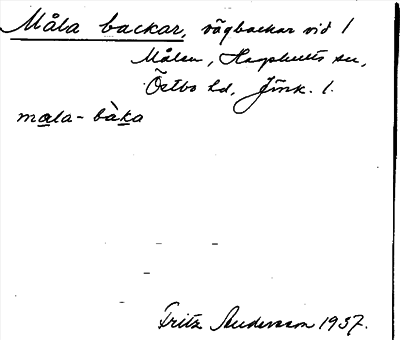 Måla backar, vägbackar vid 1
Målen, Hagshults sn,
Östbo hd, Jönk. l.
mala - bàka
Fritz Andersson 1937.